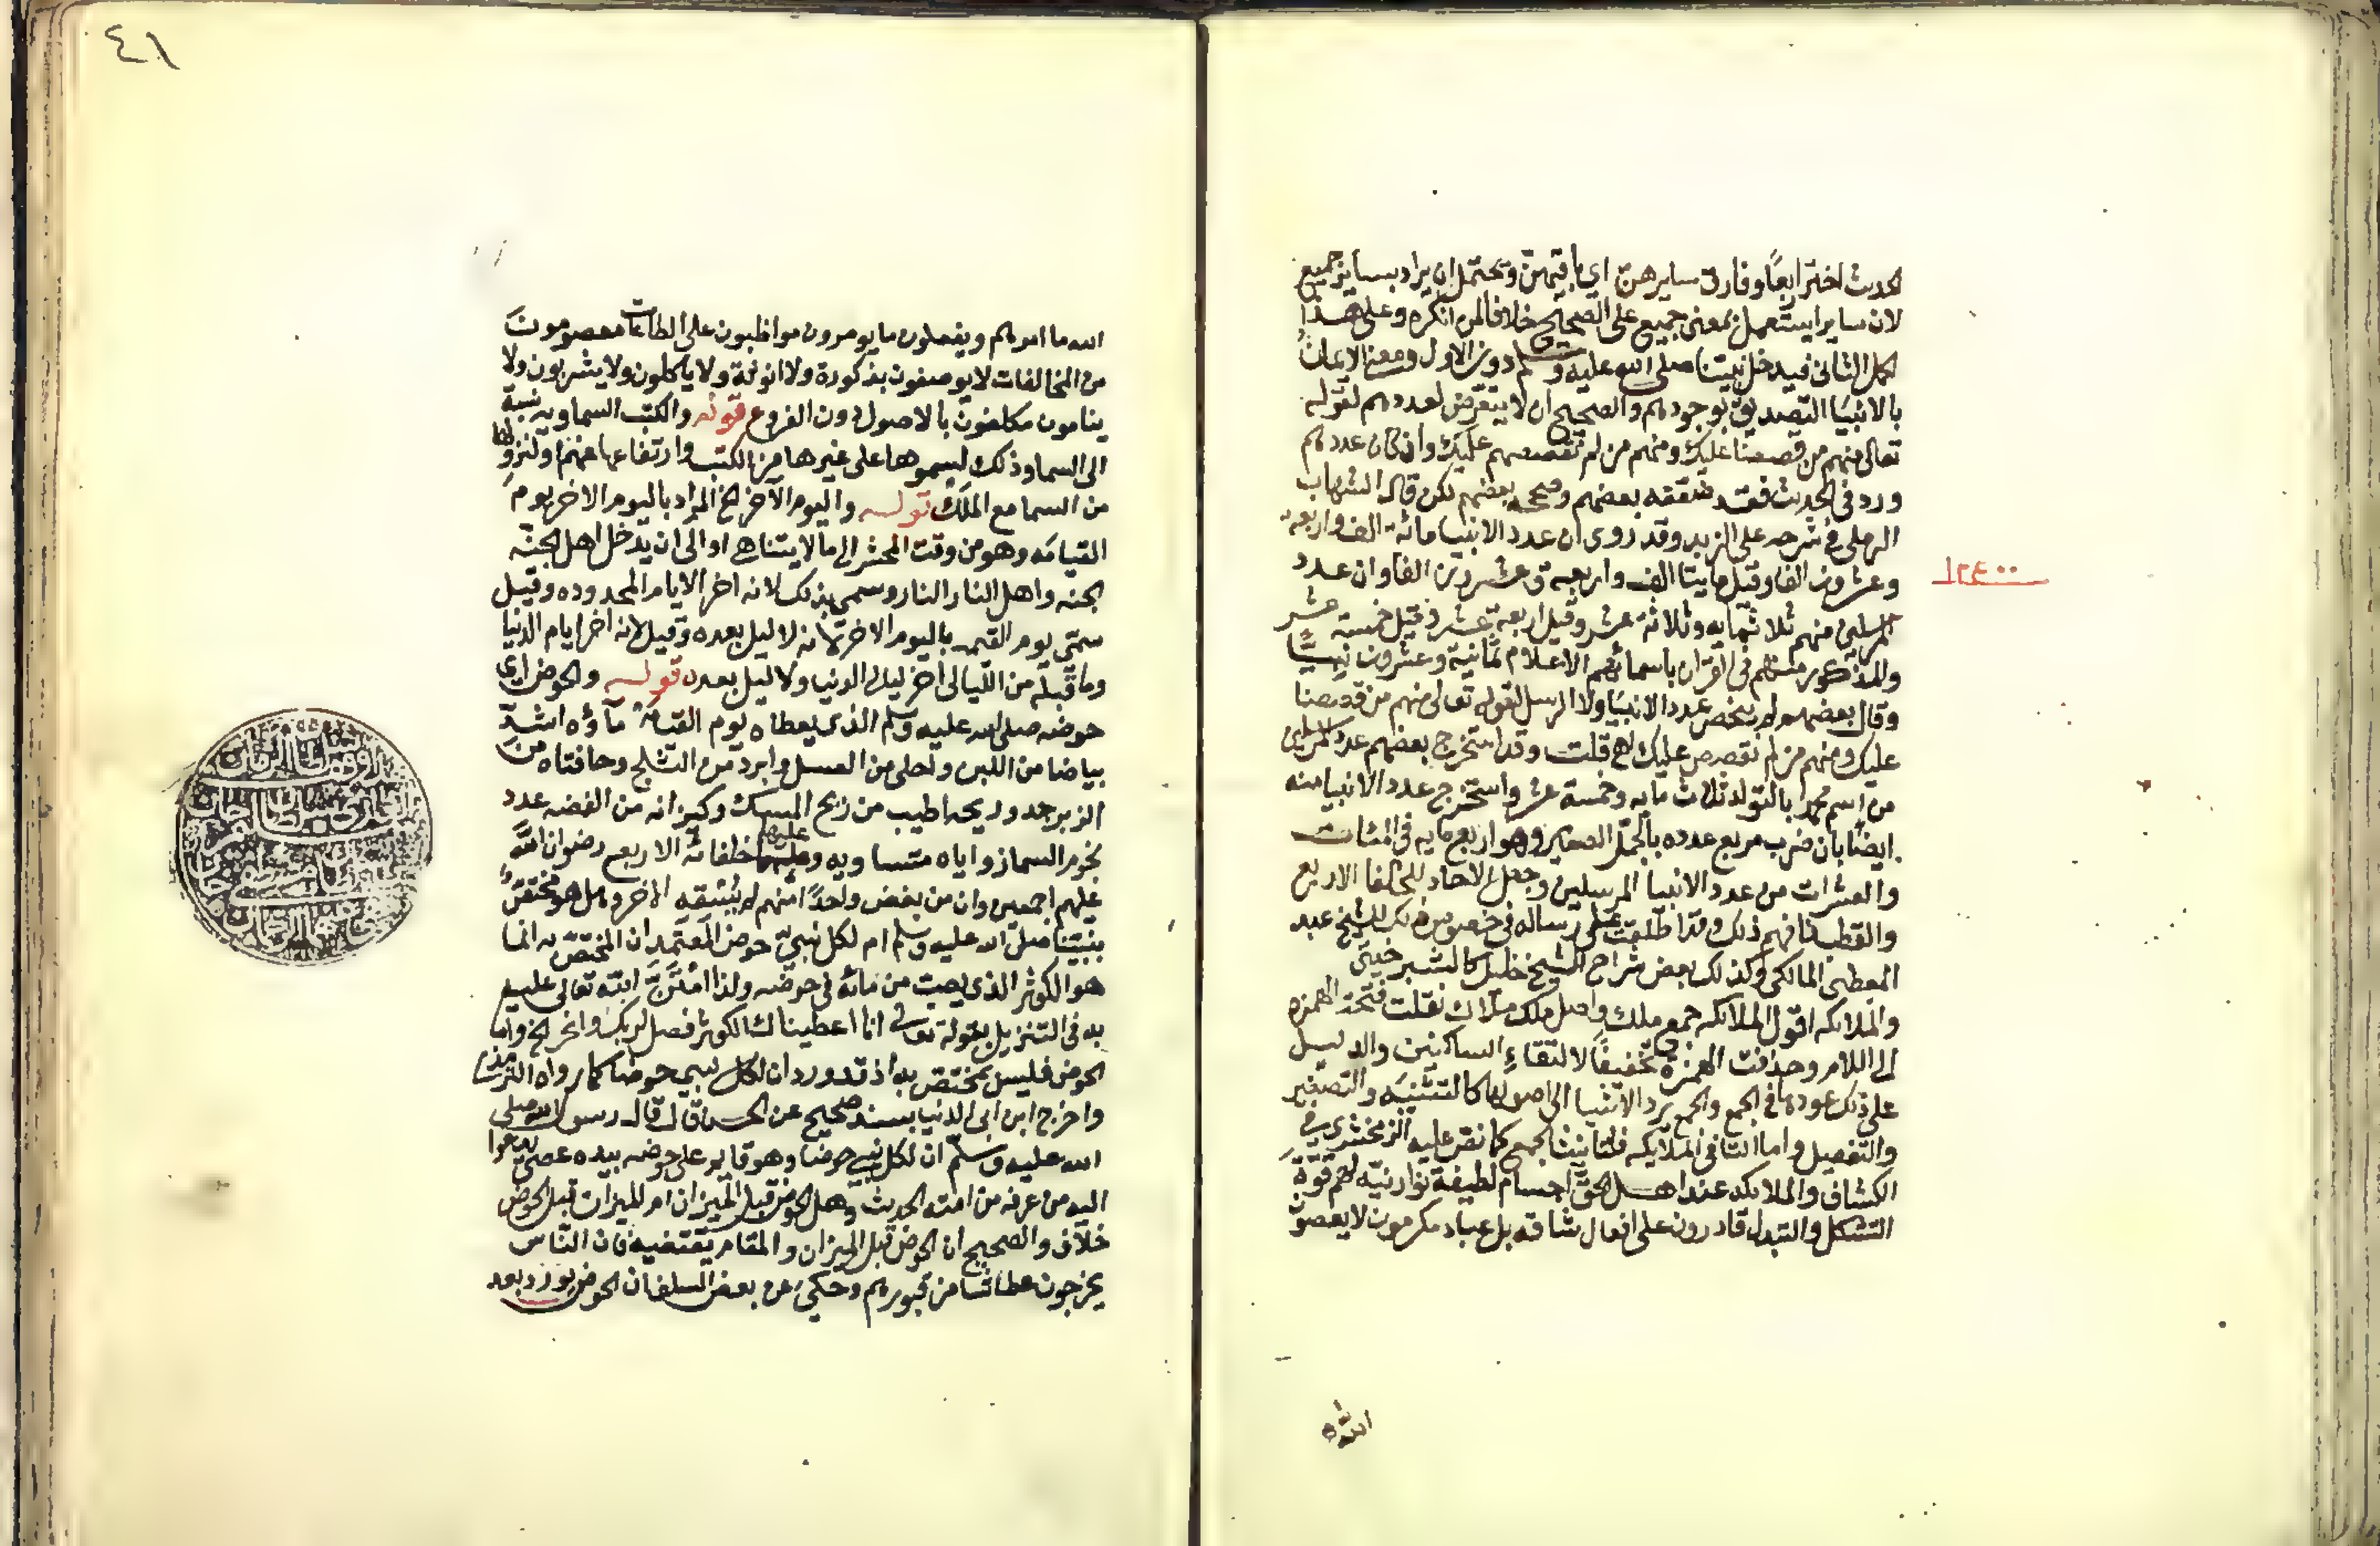 الحديث اختر اربعًا وفارق سايرهن اي باقيهن ويحتمل ان يراد بساير جميع
لان سايرا يستعمل بمعنى جميع على الصحيح خلافا لمن انكره وعلى هذا
يحمل الثاني فيدخل نبيتنا صلى الله عليه وسلم دون الاول ومعنى الايمان
بالانبيا التصديق بوجودهم والصحيح ان لا يتعرض لعددهم لقوله
تعالى منهم من قصصنا عليك ومنهم من لم نقصصهم عليك وان كان عددهم
ورد في الحديث فقد ضعفه بعضهم وصححه بعضهم لكن قال الشهاب
الرملي في شرحه على الزبد وقد روى ان عدد الانبيا مائة الف واربعة
وعشرون الفا وقيل مايتا الف واربعة وعشرون الفا وان عدد
١٢٤٠٠
المرسلين منهم ثلاثمايه وثلاثة عشر وقيل اربعة عشر وقيل خمسة عشر
والمذكور منهم في القرآن باسمائهم الاعلام ثمانية وعشرون نبيًّا
وقال بعضهم لم ينحصر عدد الانبيا ولا الرسل لقوله تعالى منهم من قصصنا
عليك ومنهم من لم نقصص عليك اهـ قلت وقد استخرج بعضهم عدد المرسلين
من اسم محمد بالتولد ثلاث مايه وخمسة عشر واستخرج عدد الانبيا منه
ايضًا بان ضرب مربع عدده بالجمل الصغير وهو اربع مايه في المئات
والعشرات من عدد الانبيا المرسلين وجعل الاحاد للخلفا الاربع
والقطب فافهم ذلك وقد اطلعت على رساله في خصوص ذلك للشيخ عبد
المعطي المالكي وكذلك بعض شراح الشيخ خليل كالشبرخيتي
والملائكه اقول الملائكه جمع ملك واصل ملك ملأك نقلت فتحة الهمزه
الى اللام وحذفت الهمزة تخفيفًا لالتقاء الساكنين والدليل
على ذلك عودها في الجمع والجمع يرد الاشيا الى اصولها كالتثنيه والتصغير
والتفصيل واما التا في الملايكه فلتانيث الجمع كما نص عليه الزمخشري في
الكشاف والملائكه عند اهل الحق اجسام لطيفة نورانيه لهم قوة
التشكل والتبدل قادرون على افعال شاقه بل عباد مكرمون لا يعصون
الله
٤١
الله ما امرهم ويفعلون ما يومرون مواظبون على الطاعات معصومون
من المخالفات لا يوصفون بذكورة ولا انوثة ولا ياكلون ولا يشربون ولا
ينامون مكلفون بالاصول دون الفروع قوله والكتب السماويه نسبة
الى السما وذلك لسموها على غيرها من الكتب وارتفاعها عنهم او لنزولها
من السما مع الملك قوله واليوم الآخر الخ المراد باليوم الاخر يوم
القيامه وهو من وقت المحشر الى ما لا يتناهى او الى ان يدخل اهل الجنة
الجنه واهل النار النار وسمي بذلك لانه اخر الايام المحدوده وقيل
سمّي يوم القيمه باليوم الاخر لانه لا ليل بعده وقيل لانه اخر ايام الدنيا
وما قبله من الليالي اخر ليالي الدنيا ولا ليل بعده قوله والحوض اي
حوضه صلى الله عليه وسلم الذي يعطاه يوم القيامة ماؤه اشد
بياضا من اللبن واحلى من العسل وابرد من الثلج وحافتاه من
الزبرجد وريحه اطيب من ريح المسك وكيزانه من الفضه عدد
نجوم السما زواياه متساويه وعليها خلفائه الاربع رضوان الله
عليهم اجمعين وان من بغض واحدًا منهم لم يسقه الاخر وهل هو مختص
بنبيّنا صلى الله عليه وسلم ام لكل نبي حوض المعتمد ان المختص به انما
هو الكوثر الذي يصب من مائه في حوضه ولذا امتن الله تعالى عليه
به في التنزيل بقوله تعالى انا اعطيناك الكوثر فصل لربك وانحر الخ واما
الحوض فليس بمختص به اذ قد ورد ان لكل نبي حوضا كما رواه الترمذي
واخرج ابن ابي الدنيا بسند صحيح عن الحسن قال قال رسول الله صلى
الله عليه وسلم ان لكل نبي حوضا وهو قايم على حوضه بيده عصى يدعوا
اليه من عرفه من امته الحديث وهل الحوض قبل الميزان ام الميزان قبل الحوض
خلاف والصحيح ان الحوض قبل الميزان والمقام يقتضيه فان الناس
يخرجون عطاشا من قبورهم وحكي عن بعض السلف ان الحوض يورد بعد